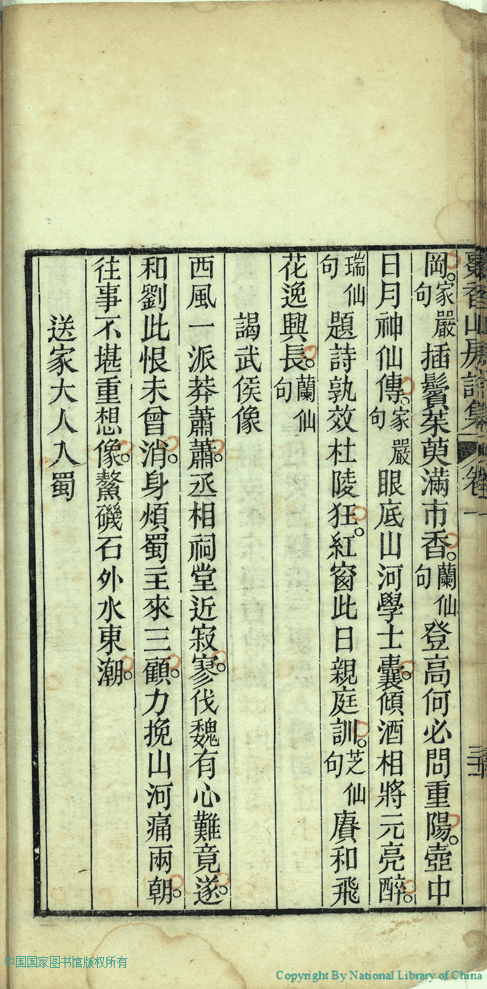 香山房詩集 卷一
岡。家嚴句插鬢茱萸滿市香。蘭仙句登高何必問重陽。壺中
日月神仙傳。家嚴句眼底山河學士囊。傾酒相將元亮醉。
瑞仙句題詩孰效杜陵狂。紅窗此日親庭訓。芝仙句賡和飛
花逸興長。蘭仙句
謁武侯像
西風一派莽蕭蕭。丞相祠堂近寂寥。伐魏有心難竟遂。
和劉此恨未曾消。身煩蜀主來三顧。力挽山河痛兩朝。
往事不堪重想像。鰲磯石外水東潮。
送家大人入蜀
中国国家图书馆版权所有
Copyright By National Library of China